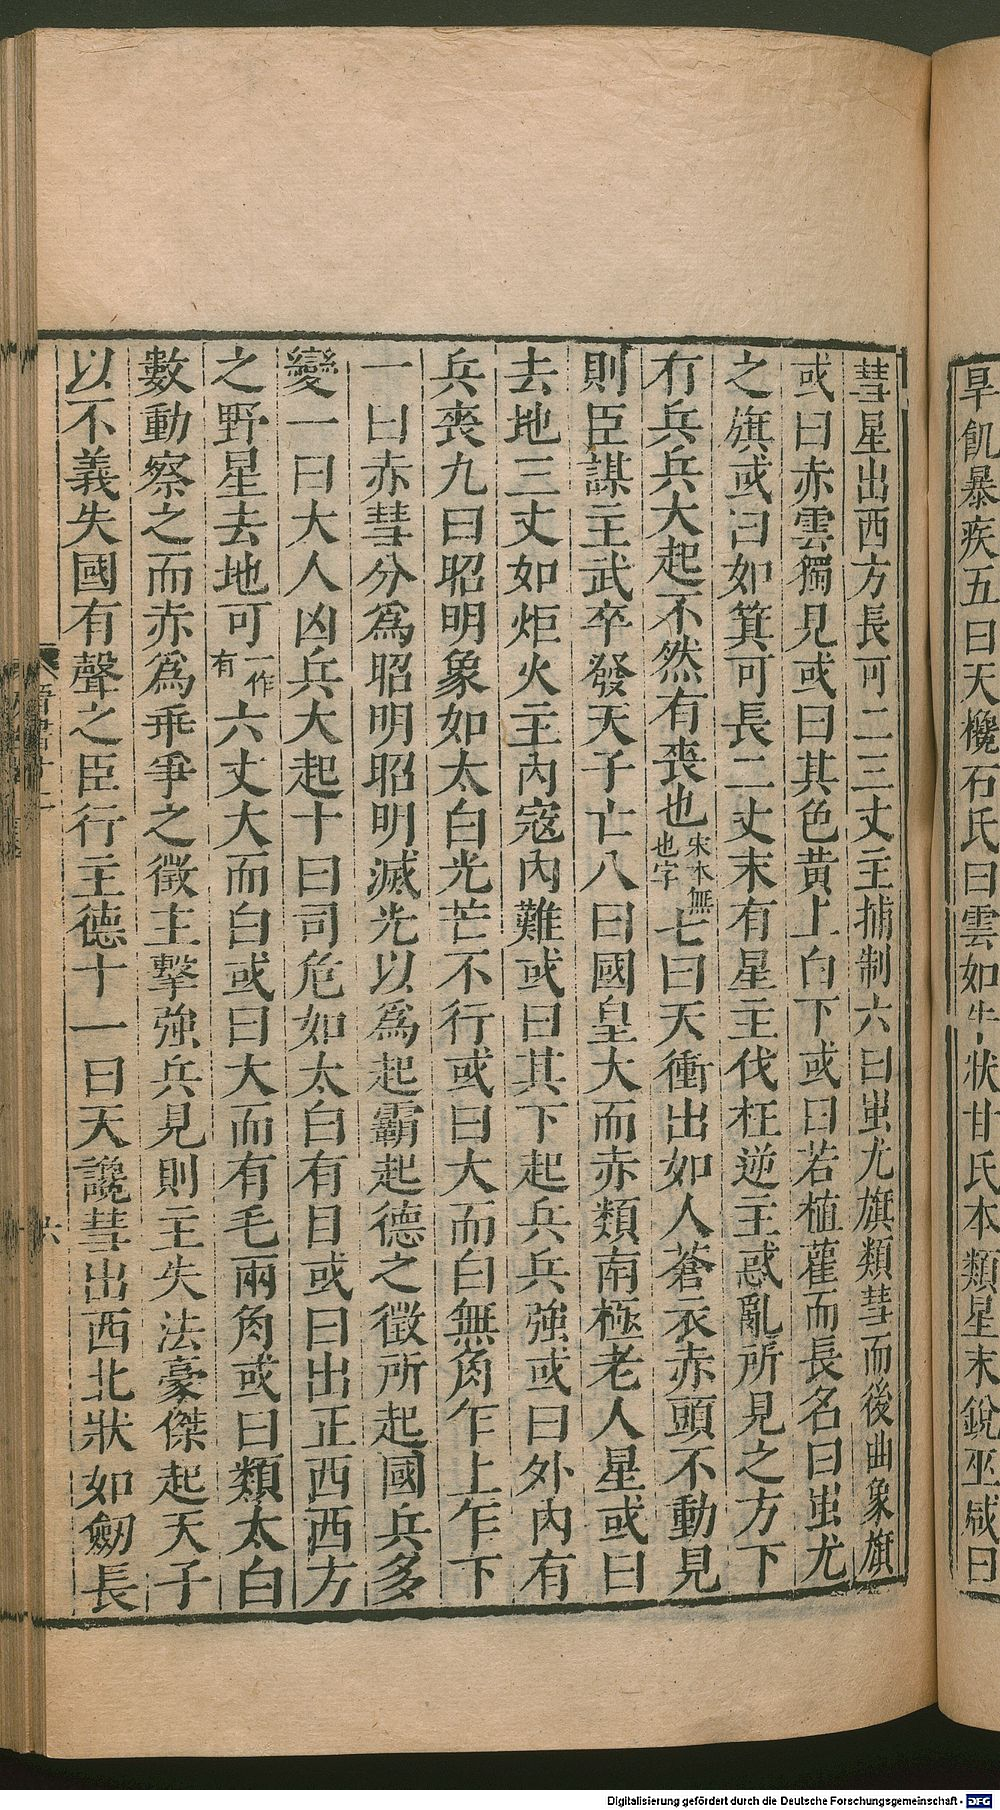 旱飢暴疾五曰天欃石氏曰雲如牛狀甘氏本類星末銳巫咸曰
彗星出西方長可二三丈主捕制六曰蚩尤旗類彗而後曲象旗
或曰赤雲獨見或曰其色黃上白下或曰若植雚而長名曰蚩尤
之旗或曰如箕可長二丈末有星主伐枉逆主惑亂所見之方下
有兵兵大起不然有喪也宋本無也字七曰天衝出如人蒼衣赤頭不動見
則臣謀主武卒發天子亡八曰國皇大而赤類南極老人星或曰
去地三丈如炬火主內寇內難或曰其下起兵兵強或曰外內有
兵喪九曰昭明象如太白光芒不行或曰大而白無角乍上乍下
一曰赤彗分爲昭明昭明滅光以爲起霸起德之徵所起國兵多
變一曰大人凶兵大起十曰司危如太白有目或曰出正西西方
之野星去地可一作有六丈大而白或曰大而有毛兩角或曰類太白
數動察之而赤爲乖爭之徵主擊強兵見則主失法豪傑起天子
以不義失國有聲之臣行主德十一曰天讒彗出西北狀如劒長
六
Digitalisierung gefördert durch die Deutsche Forschungsgemeinschaft - DFG